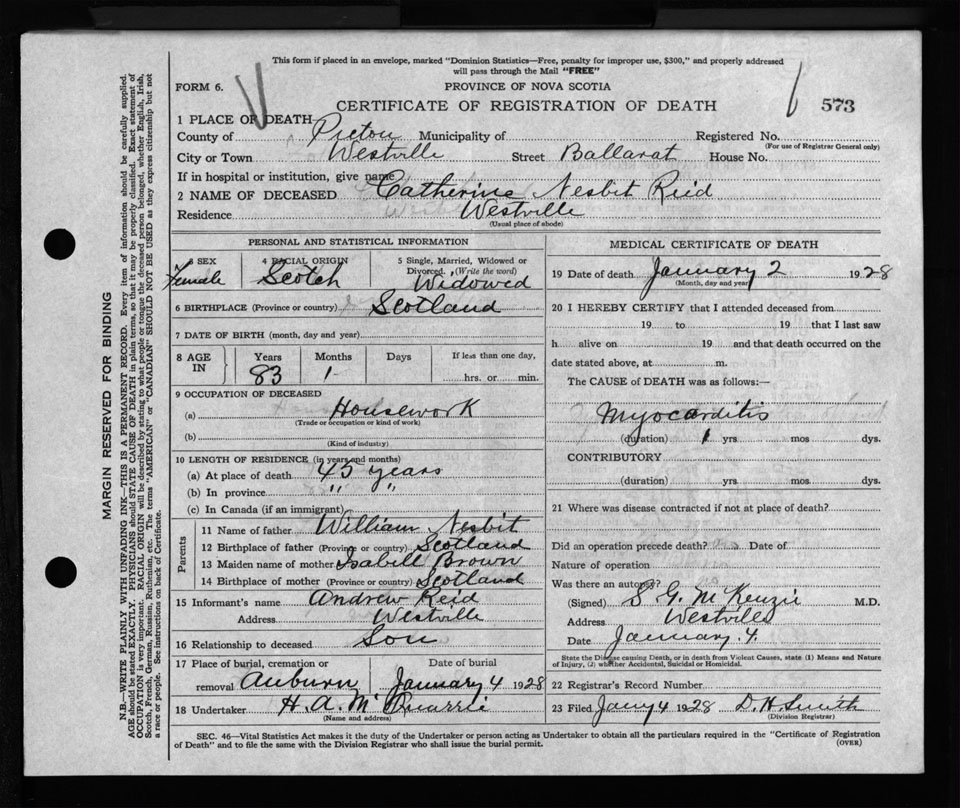 This form if placed in an envelope, marked "Dominion Statistics—Free, penalty for improper use, $300," and properly addressed
will pass through the Mail "FREE"
FORM 6.
PROVINCE OF NOVA SCOTIA
CERTIFICATE OF REGISTRATION OF DEATH
573
1 PLACE OF DEATH
County of Pictou Municipality of Registered No.
(For use of Registrar General only)
City or Town Westville Street Ballarat House No.
If in hospital or institution, give name
2 NAME OF DECEASED Catherine Nesbit Reid
Residence Westville
(Usual place of abode)
PERSONAL AND STATISTICAL INFORMATION
3 SEX Female
4 RACIAL ORIGIN Scotch
5 Single, Married, Widowed or
Divorced. (Write the word)
Widowed
6 BIRTHPLACE (Province or country) Scotland
7 DATE OF BIRTH (month, day and year)
8 AGE IN
Years Months Days If less than one day,
83 1 hrs. or min.
9 OCCUPATION OF DECEASED
(a) Housework
(Trade or occupation or kind of work)
(b)
(Kind of industry)
10 LENGTH OF RESIDENCE (in years and months)
(a) At place of death 45 years
(b) In province " "
(c) In Canada (if an immigrant)
Parents
11 Name of father William Nesbit
12 Birthplace of father (Province or country) Scotland
13 Maiden name of mother Isabill Brown
14 Birthplace of mother (Province or country) Scotland
15 Informant's name Andrew Reid
Address Westville
16 Relationship to deceased Son
17 Place of burial, cremation or
removal Auburn
Date of burial
January 4 1928
18 Undertaker H. A. McQuarrie
(Name and address)
MEDICAL CERTIFICATE OF DEATH
19 Date of death January 2 1928
(Month, day and year)
20 I HEREBY CERTIFY that I attended deceased from
19 to 19 that I last saw
h alive on 19 and that death occurred on the
date stated above, at m.
The CAUSE of DEATH was as follows:—
Myocarditis
(duration) 1 yrs mos dys.
CONTRIBUTORY
(duration) yrs. mos. dys.
21 Where was disease contracted if not at place of death?
Did an operation precede death? Date of
Nature of operation
Was there an autopsy?
(Signed) S. G. McKenzie M.D.
Address Westville
Date January. 4
State the Disease causing Death, or in death from Violent Causes, state (1) Means and Nature
of Injury, (2) whether Accidental, Suicidal or Homicidal.
22 Registrar's Record Number
23 Filed Jany 4 1928 D. H Smith
(Division Registrar)
SEC. 46—Vital Statistics Act makes it the duty of the Undertaker or person acting as Undertaker to obtain all the particulars required in the "Certificate of Registration
of Death" and to file the same with the Division Registrar who shall issue the burial permit.
(OVER)
MARGIN RESERVED FOR BINDING
N.B.—WRITE PLAINLY WITH UNFADING INK—THIS IS A PERMANENT RECORD. Every item of information should be carefully supplied.
AGE should be stated EXACTLY. PHYSICIANS should STATE CAUSE OF DEATH in plain terms, so that it may be properly classified. Exact statement of
OCCUPATION is very important. RACIAL ORIGIN will be described by stating to what people or tongue the deceased person belonged, whether English, Irish,
Scotch, French, German, Russian, Ruthenian, etc. The terms "AMERICAN" or "CANADIAN" SHOULD NOT BE USED as they express citizenship but not
a race or people. See instructions on back of Certificate.